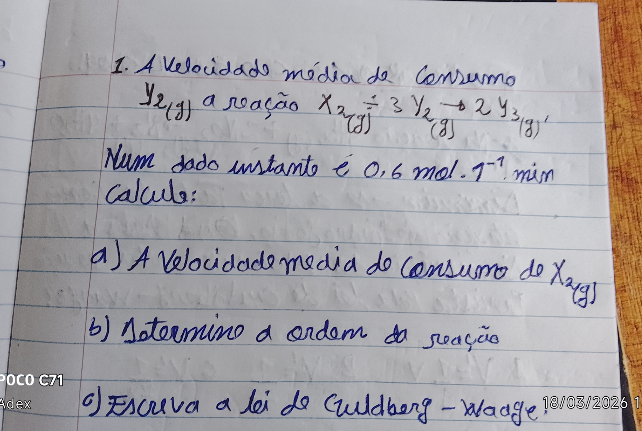 1. A velocidade média de Consumo
Y2(g) a reação X2(g) ÷ 3 Y2(g) → 2 Y3(g),
Num dado instante é 0,6 mol. 1⁻¹. min
Calcule:
a) A velocidade media de Consumo de X2(g)
b) Determine a ordem da reação
c) Escreva a lei de Guldberg - Waage!
POCO C71
Adex
18/03/2026 1